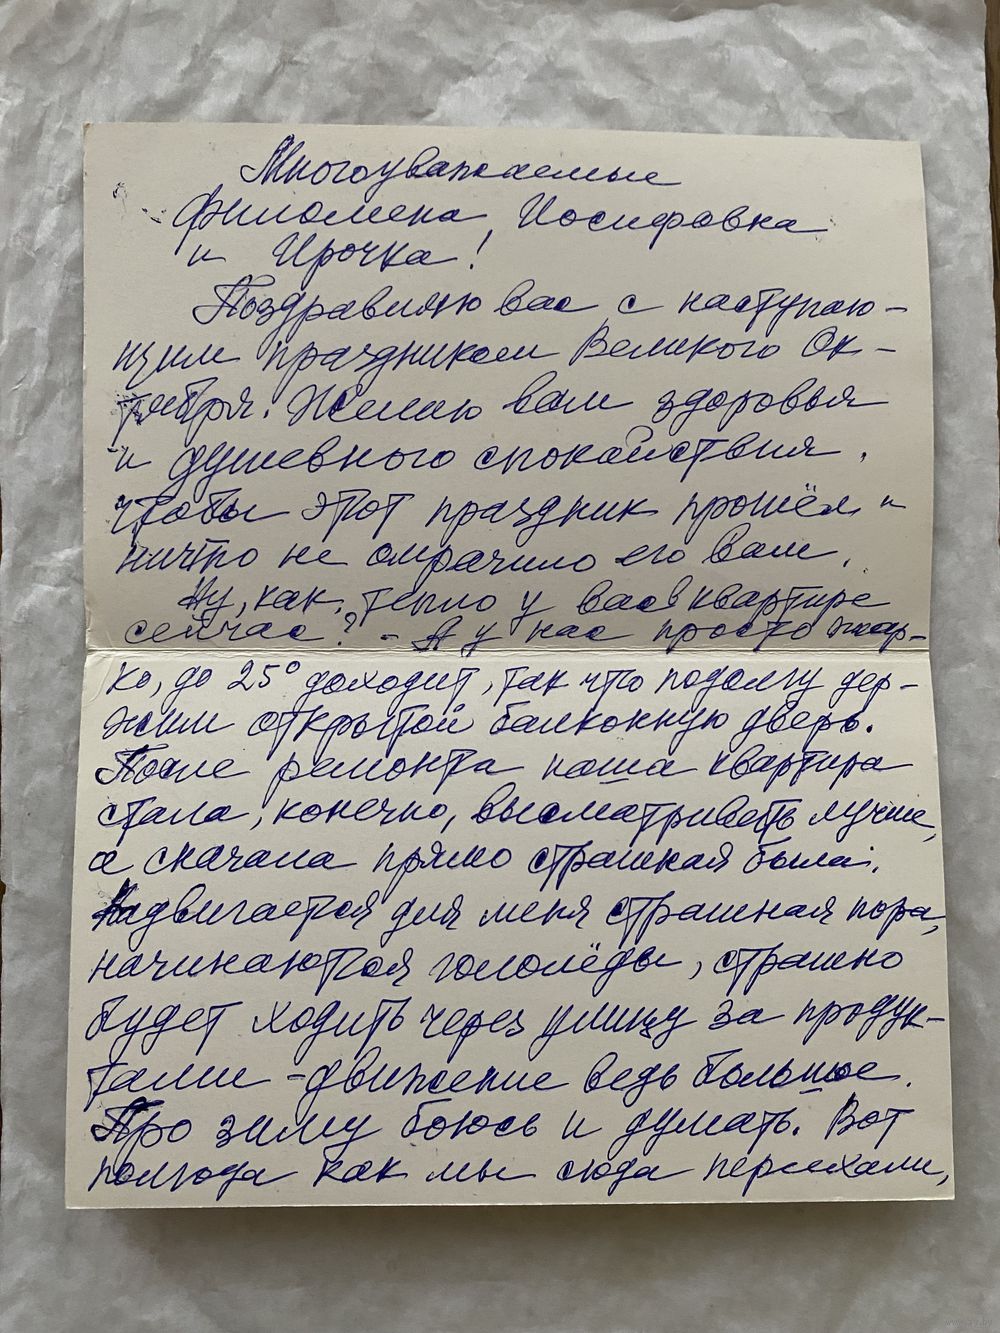 Многоуважаемые
Филомена Иосифовна
и Ирочка!
Поздравляю вас с наступаю-
щим праздником Великого Ок-
тября. Желаю вам здоровья
и душевного спокойствия,
чтобы этот праздник прошёл и
ничто не омрачило его вам.
Ну, как, тепло у вас в квартире
сейчас? - А у нас просто жар-
ко, до 25° доходит, так что подолгу дер-
жим открытой балконную дверь.
После ремонта наша квартира
стала, конечно, высматривать лучше,
а сначала прямо страшная была.
Надвигается для меня страшная пора,
начинаются гололёды, страшно
будет ходить через улицу за продук-
тами - движение ведь большое.
Про зиму боюсь и думать. Вот
полгода как мы сюда переехали,